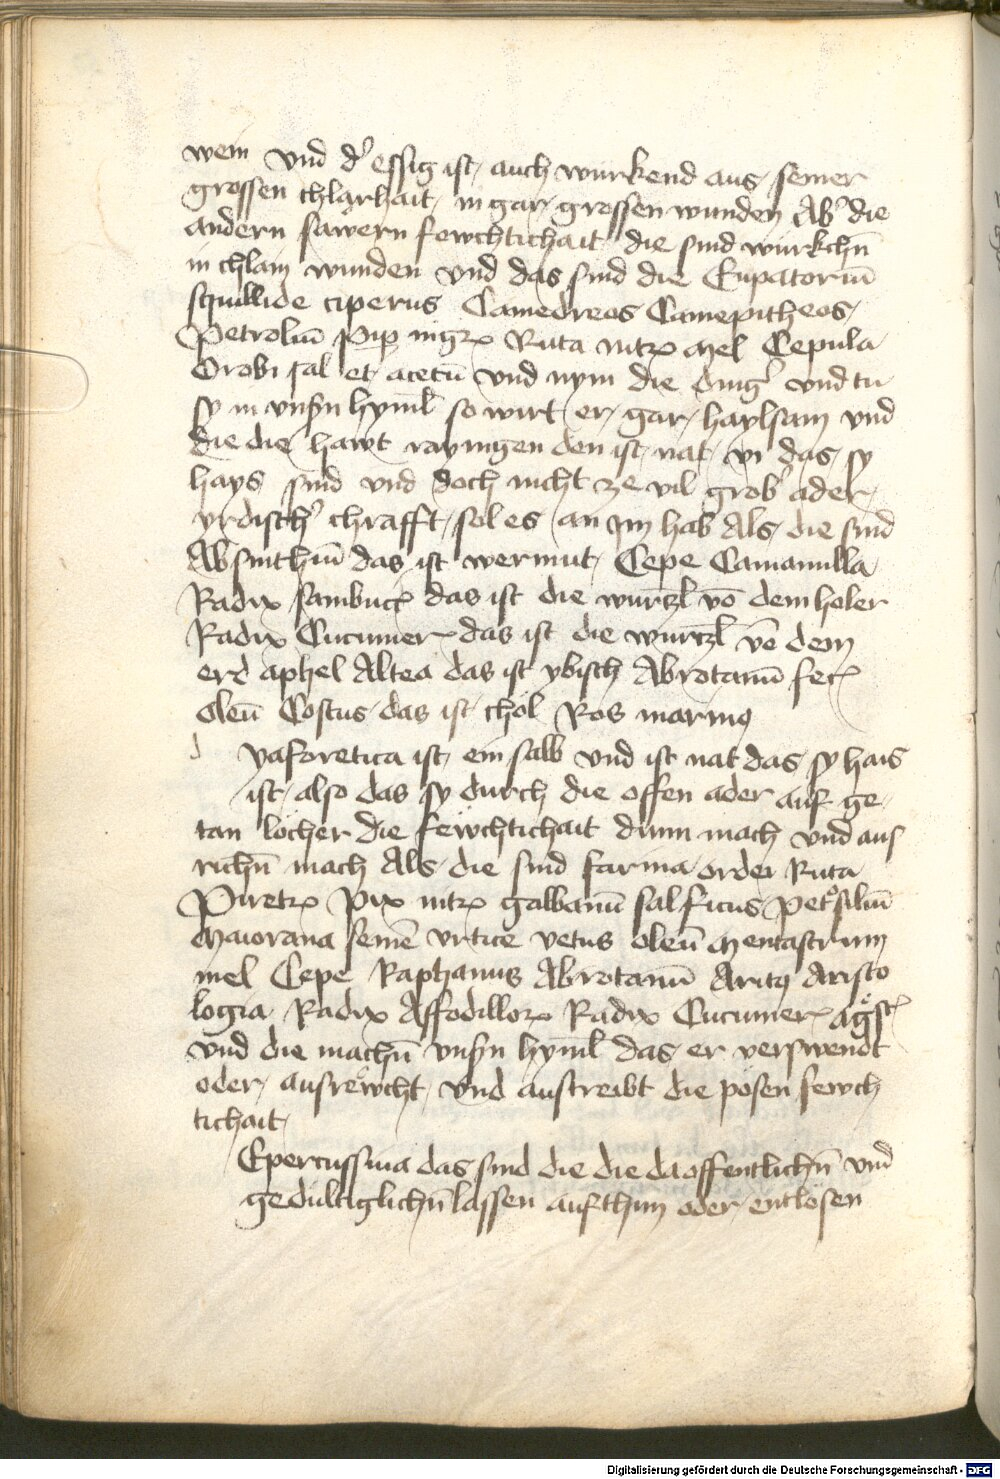 wein vnd d' essig ist auch würkend aus seiner
grossen chlarhait in gar grossen wunden Ab' die
andern sawern fewchtichait die sind würkchn̄
in chlain wunden vnd das sind die Eupatoriū
squillide ciperus Camedreos Camepitheos
Petroliū Pip nigr Ruta nitr Mel Cepula
Orobi sal et acetū vnd nym die ding' vnd tu
sy in vnsn hyml̄ so wirt er gar haylsam vnd
die die hawt rayingen den ist nat das sy
hays sind vnd doch nicht ze vil grob' ader
yrdisch' chrafft sol es an ym hab Als die sind
Absinthiū das ist wermut Cepe Camamilla
Radix sambuc das ist die wurtzl̄ vō dem holer
Radix Cucumer das ist die wurtzl̄ vō dem
erd aphel Altea das ist ybisch Abrotanū fec
oleū Costus das ist chöl Ros marin9
d yaforetica ist ein salb vnd ist nat das sy hais
ist also das sy durch die offen ader auf ge
tan löcher die fewchtichait dunn mach vnd aus
richn̄ mach Als die sind farina ordei Ruta
Piretr Pix nitr galbanū sal ficus Pet°siliū
Maiorana semē vrtice vetus oleū Mentastrum
mel Cepe Raphanus Abrotanū Aristo
logia Radix Affodillor Radix Cucumer agst
vnd die machn̄ vnsn hyml̄ das er verswendt
oder ausrewcht vnd austreibt die pösen fewch
tichait
Epercussiua das sind die die da offentlichn̄ vnd
gedultiglichn̄ lassen aufthun oder entlösen
Digitalisierung gefördert durch die Deutsche Forschungsgemeinschaft - DFG